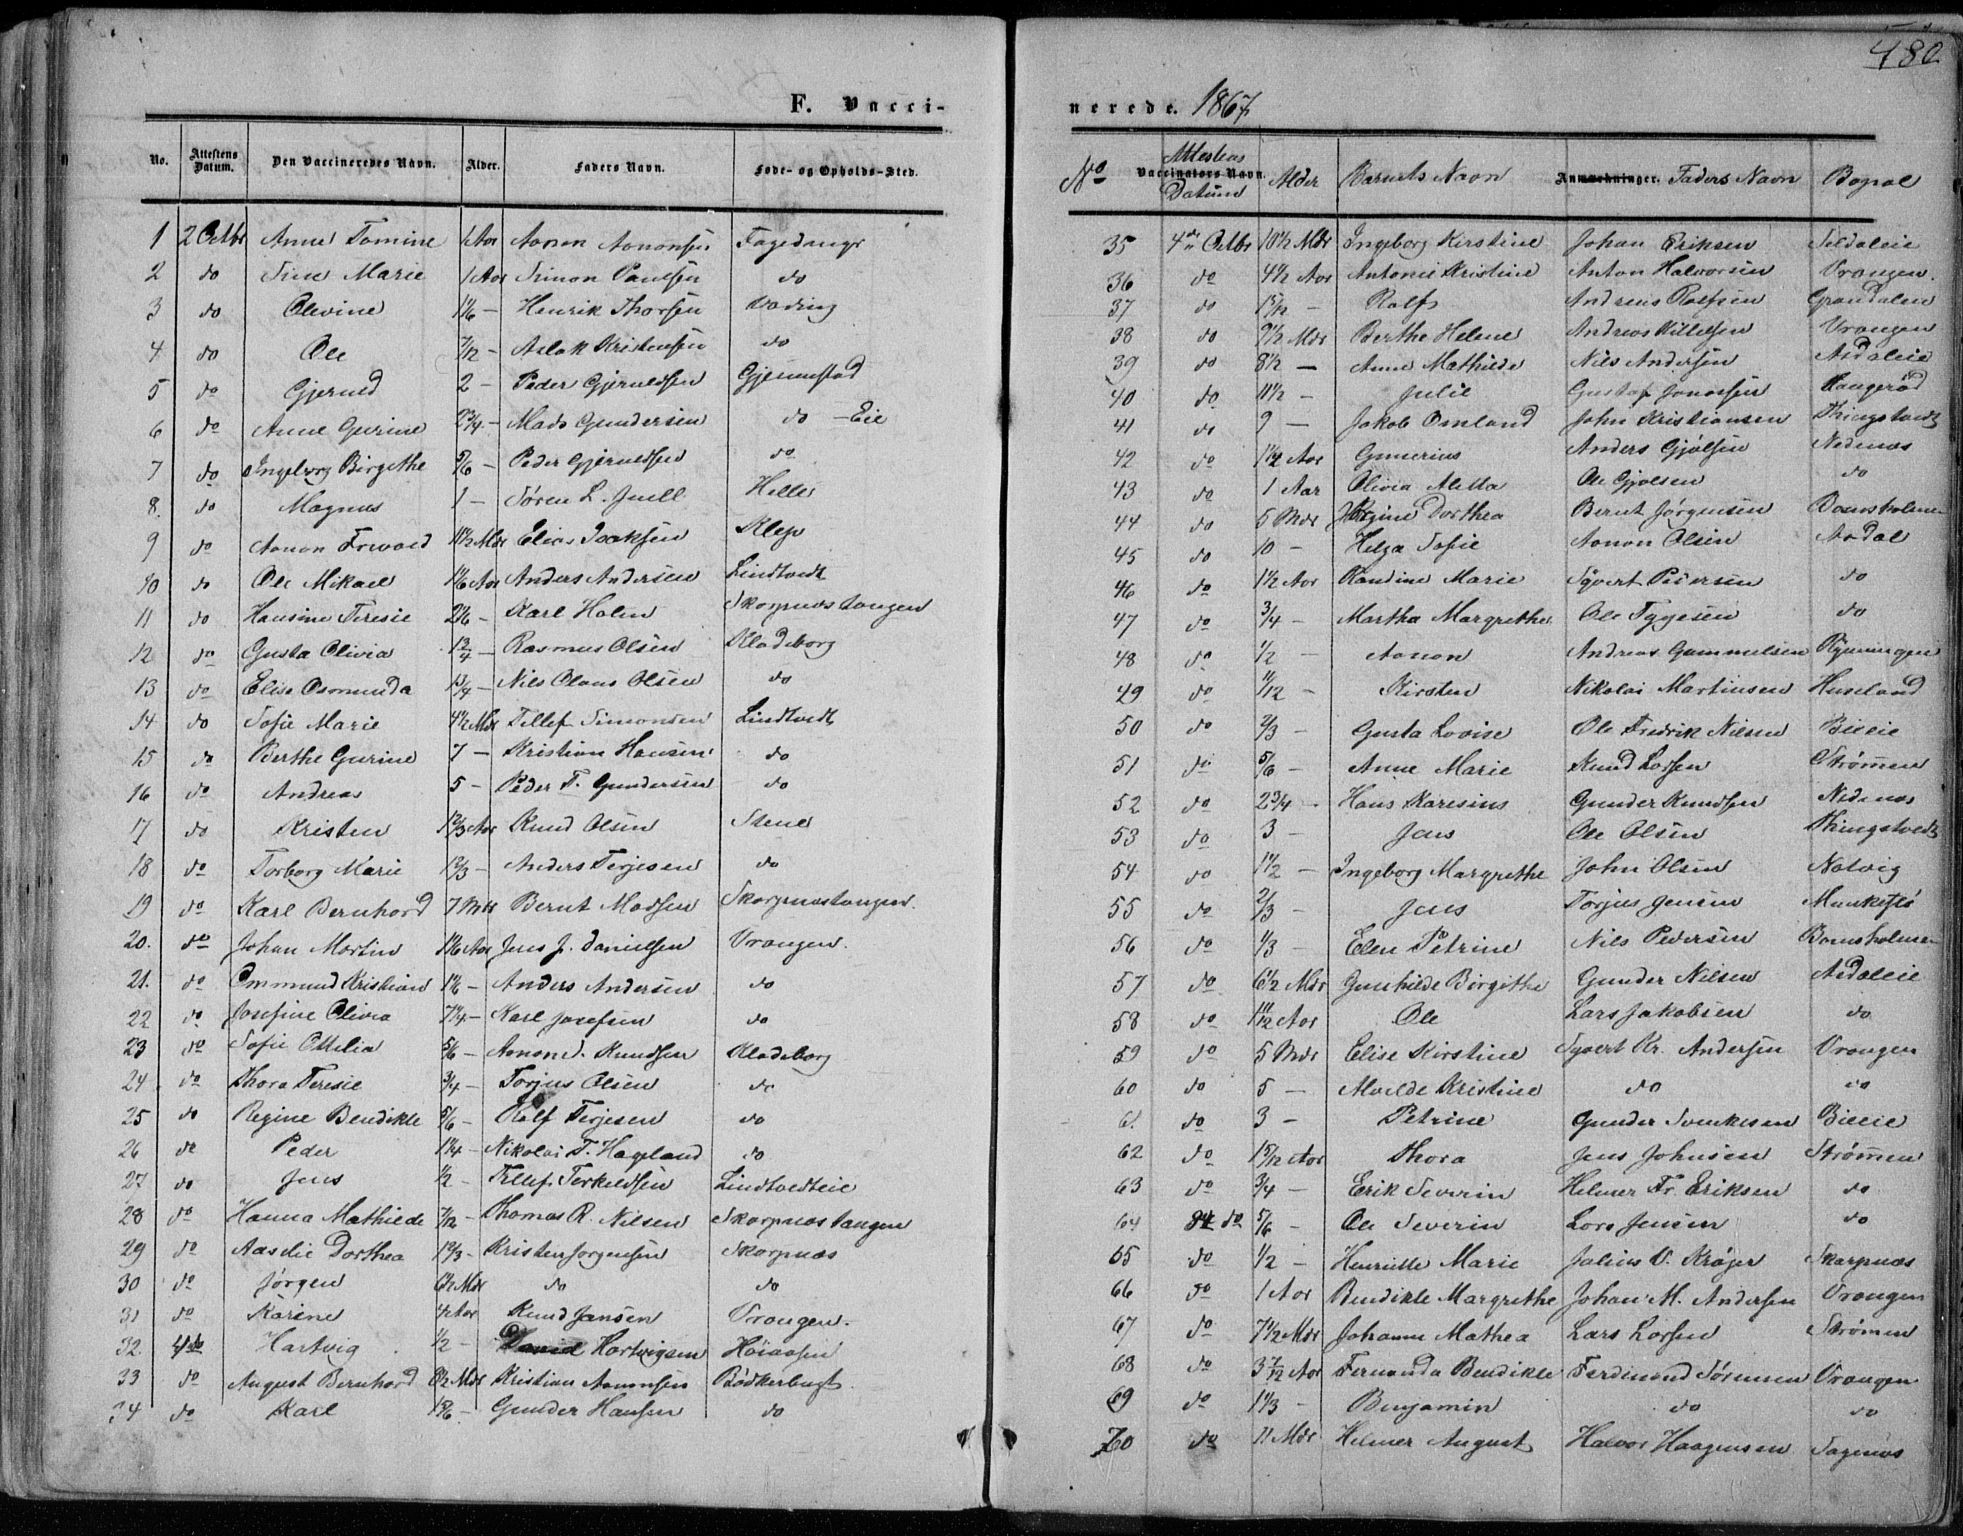 480
F. Vacci-
No. Attestens Datum. Den Vaccineredes Navn. Alder. Faders Navn. Føde- og Opholds-Sted.
1 2 Octbr Anne Tomine 1 Aar Aanon Aanonsen
2 do Sine Marie 1 Aar Simon Paulsen do
3 do Olevine 1 1/6 — Henrik Thorsen
4 do Ole 7/12 — Aslak Kristensen do
5 do Gjerul 2 — Peder Gjeruldsen Gjennestad
6 do Anne Gurine 2 3/4 — Mads Gundersen do — Eie
7 do Ingeborg Birgithe 5/6 — Peder Gjeruldsen do
8. do Magnus 1 — Søren L. Juell Helle
9 do Aanon Edvard Mdr Elias Isaksen Klep
10 do Ole Mikael 1 1/6 Aar Anders Andersen Lindtvedt
11 do Hansine Teresie 2 1/6 — Karl Holm Skarpnæstangen
12 do Gusta Olivia Rasmus Olsen Kladeborg
13 do Elise Osmunda Nils Olaus Olsen do
14 do Sofie Marie 4 1/2 Mdr Tellef Simonsen Lindtvedt
15 do Berthe Gurine 7 — Kristian Hansen do
16 do Andreas 5 — Peder T. Gundersen do
17 do Kristen 1 2/3 Aar Knud Olsen Stene
18 do Torborg Marie 1 2/3 — Anders Terjesen do
19 do Karl Bernhard 7 Mdr Bernt Madsen Skarpnæstangen.
20. do Johan Martin 1 1/6 Aar Jens J. Danielsen Vrangen.
21. do Ommund Kristian 1 1/6 — Anders Andersen do
22 do Josefine Olivia 7 1/4 — Karl Josefsen do
23 do Sofie Ottilia 5/6 — Aanon Knudsen Kladeborg
24 do Thora Teresie 3/4 — Torjus Olsen do
25 do Regine Bendikte 5/6 — Rolf Terjesen do
26 do Peder 1 1/4 — Nikolai T. Hageland do
27 do Jens 1/2 — Tellef Terkeldsen Lindtvedteie
28 do Hanna Mathilde 7/12 — Thomas R. Nilsen Skarpnæstangen
29 do Aaselie Dorthea 1 2/3 — Kristen Jørgensen Skarpnæs
30 do Jørgen Mdr do do
31 do Karine Aar Knud Jansen Vrangen.
32 4de Hartvig 1/2 — Hartvigsen Høiaasen
33 do August Bernhard 8 1/2 Mdr Kristian Aanonsen Bödkerbugt
34 do Karl 1 5/6 — Gunder Hansen do
nerede. 1867
No Attestens Datum Vaccinators Navn. Alder Barnets Navn Anmærkninger. Faders Navn Bopæl
35 4de Octbr 10 1/2 Mdr Ingeborg Kirstine Johan Eriksen
36 do 4 1/2 Aar Antonie Kristine Anton Halvorsen Vrangen.
37 do 1 5/12 — Rolf Andreas Rolfsen Grandalen
38 do 9 1/2 Mdr Berthe Helene Andreas Killelsen Vrangen
39 do 8 1/2 — Anne Mathilde Nils Andersen Asdaleie
40 do 11 1/2 — Julie Gustaf Jonassen Haugerød
41 do 9 — Jakob Omland John Kristiansen Thingstvedt
42 do Aar Gunerius Anders Gjølsen Nedenæs
43 do 1 Aar Olivia Aletta Ole Gjølsen do
44 do 5 Mdr Dorthea Bernt Jørgensen
45 do 10 — Helga Sofie Aanon Olsen Asdal
46 do 1 1/2 Aar Kandine Marie Syvert Pedersen do
47 do 3/4 — Martha Margrethe Ole Tygesen do
48 do 1/2 — Aanon Andreas Gummelsen Rynningen
49 do 11/12 — Kirsten Nikolai Martinsen Huseland
50 do 2/3 — Gusta Lovise Ole Fredrik Nilsen Bieeie
51 do 5/6 — Anne Marie Knud Larsen Strømen
52 do 2 3/4 — Hans Karesius Gunder Knudsen Nedenæs
53 do 3 — Jens Ole Olsen Thingstvedt
54 do 1 1/2 — Ingeborg Margrethe John Olsen Natvig
55 do 2/3 — Jens Torjus Jensen
56 do 1/3 — Elen Petrine Nils Pedersen
57 do 6 1/2 Mdr Gunhilde Birgithe Gunder Nilsen Asdaleie
58 do Aar Ole Lars Jakobsen do
59 do 5 Mdr Elise Kirstine Syvert Kr. Andersen Vrangen
60 do 5 — Alvilde Kristine do do
61 do 3 — Petrine Gunder Svenkesen Bieeie
62 do 1 5/12 Aar Thora Jens Johnsen Strømmen
63 do 3/4 — Erik Severin Helmer Fr. Eriksen do
64 do 5/6 — Ole Severin Lars Jensen do
65 do 1/2 — Henriette Marie Julius V. Krøger Skarpnæs
66 do 1 Aar Bendikte Margrethe Johan M. Andersen Vrangen
67 do 7 1/2 Mdr Johanne Mathea Lars Larsen Strømen
68 do 3 7/12 Aar Fernanda Bendikte Ferdinand Sørensen Vrangen
69 do 1 1/3 — Benjamin do do
70 do 11 Mdr Helmer August Halvor Haagensen Sagenæs